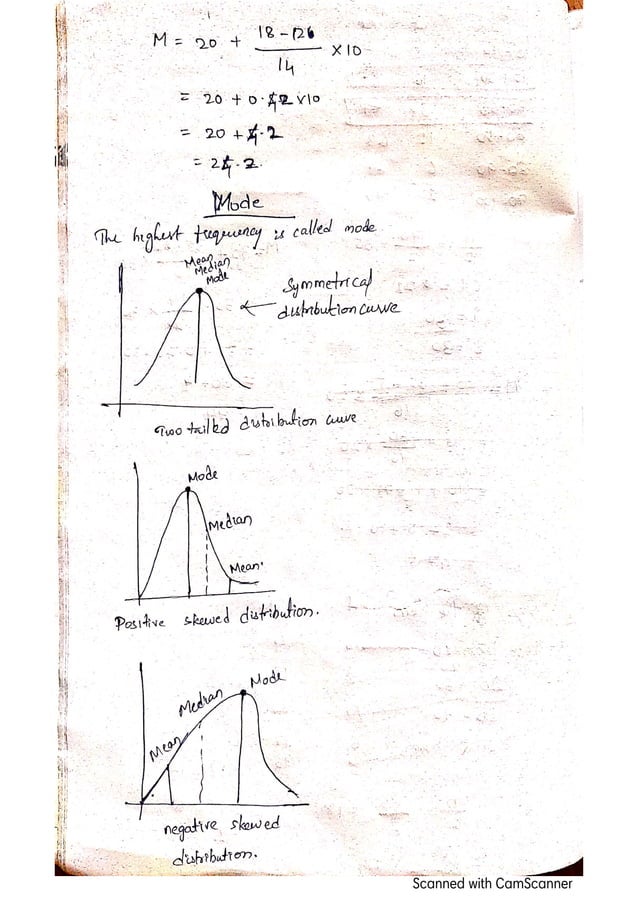 M = 20 + (18 - 126) / 14 × 10
= 20 + 0.42 × 10
= 20 + 4.2
= 24.2
Mode
The highest frequency is called mode
Mean
Median
Mode
Symmetrical
distribution curve
Two tailed distribution curve
Mode
Median
Mean.
Positive skewed distribution.
Mode
Median
Mean
negative skewed
distribution.
Scanned with CamScanner